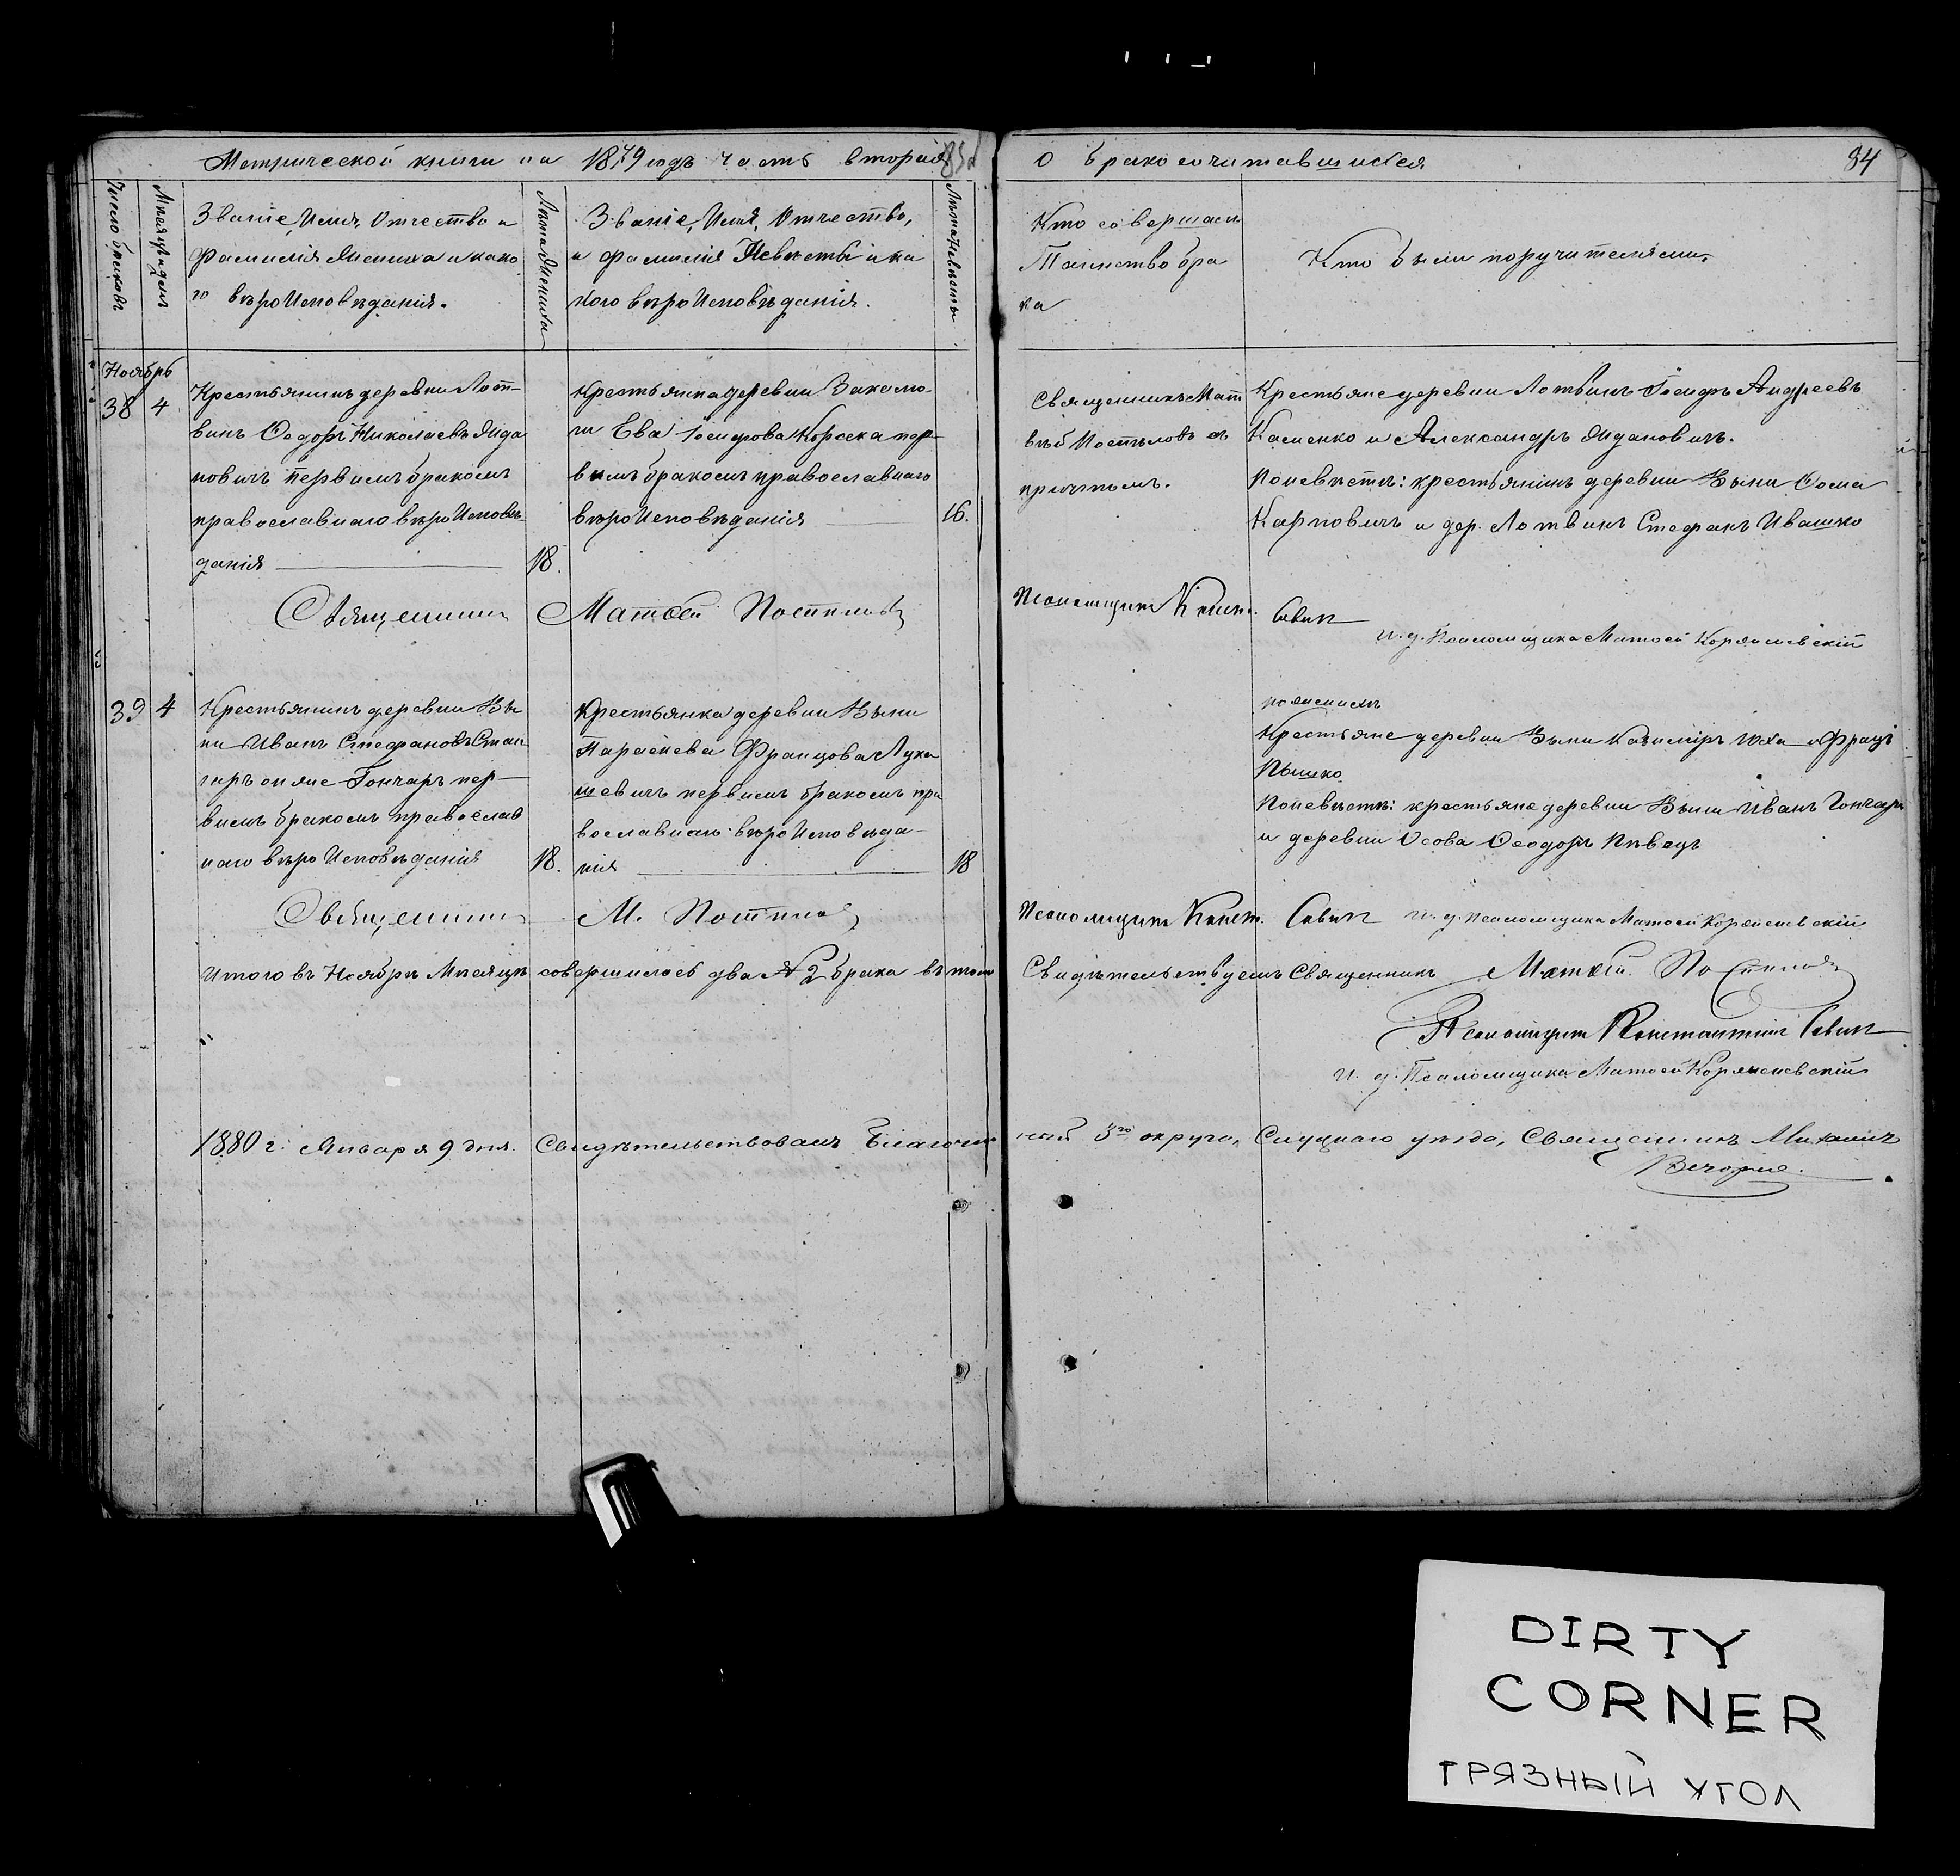 Метрической книги на 1879 годъ часть вторая
о бракосочитавшихся
84
Число браковъ
Мѣсяцъ и день
Званіе, Имя, Отчество и
Фамилія Жениха и како
го вѣроИсповѣданія.
Лѣта Жениха
Званіе, Имя, Отчество,
и фамилія Невѣсты и ка
кого вѣроИсповѣданія.
Лѣта Невѣсты
Кто совершалъ
Таинство бра
ка
Кто были поручителями.
Ноябрь
38 4
Крестьянинъ деревни Лот-
винъ Ѳеодоръ Николаевъ Жда
новичъ первымъ бракомъ
православнаго вѣроИсповѣ-
данія
18.
Крестьянка деревни
Ева Іосифова пер-
вымъ бракомъ православнаго
вѣроИсповѣданія
16.
Священникъ Мат
вѣй съ
причтомъ.
Крестьяне деревни Лотвинъ Іосифъ Андреевъ
Каменко и Александръ Ждановичъ.
По невѣстѣ: крестьянинъ деревни Выни Ѳома
Карповичъ и дер. Лотвинъ Стефанъ Ивашко
Священникъ Матѳей
Псаломщикъ Конст. Савичъ
и. д. Псаломщика Матѳей
39 4
Крестьянинъ деревни Вы
ни Иванъ Стефановъ
Гончаръ пер-
вымъ бракомъ православ
наго вѣроИсповѣданія
18.
Крестьянка деревни Выни
Параскева Францова Лука
шевичъ первымъ бракомъ пра
вославнаго вѣроИсповѣда-
нія
18
Крестьяне деревни Выни Казиміръ Юха и Францъ
Пышко
По невѣстѣ: крестьяне деревни Выни Иванъ Гончаръ
и деревни Осова Ѳеодоръ Пѣвецъ
Священникъ М.
Псаломщикъ Конст. Савичъ и. д. псаломщика Матѳей
Итого въ Ноябрѣ Мѣсяцѣ совершилось два № 2 брака въ томъ
Свидѣтельствуемъ Священникъ Матѳей
Псаломщикъ Константинъ Савичъ
и. д. Псаломщика Матѳей
1880 г. Января 9 дня. Свидѣтельствовалъ Благочин
ный 3го округа, Слуцкаго уѣзда, Священникъ Михаилъ
DIRTY
CORNER
ГРЯЗНЫЙ УГОЛ